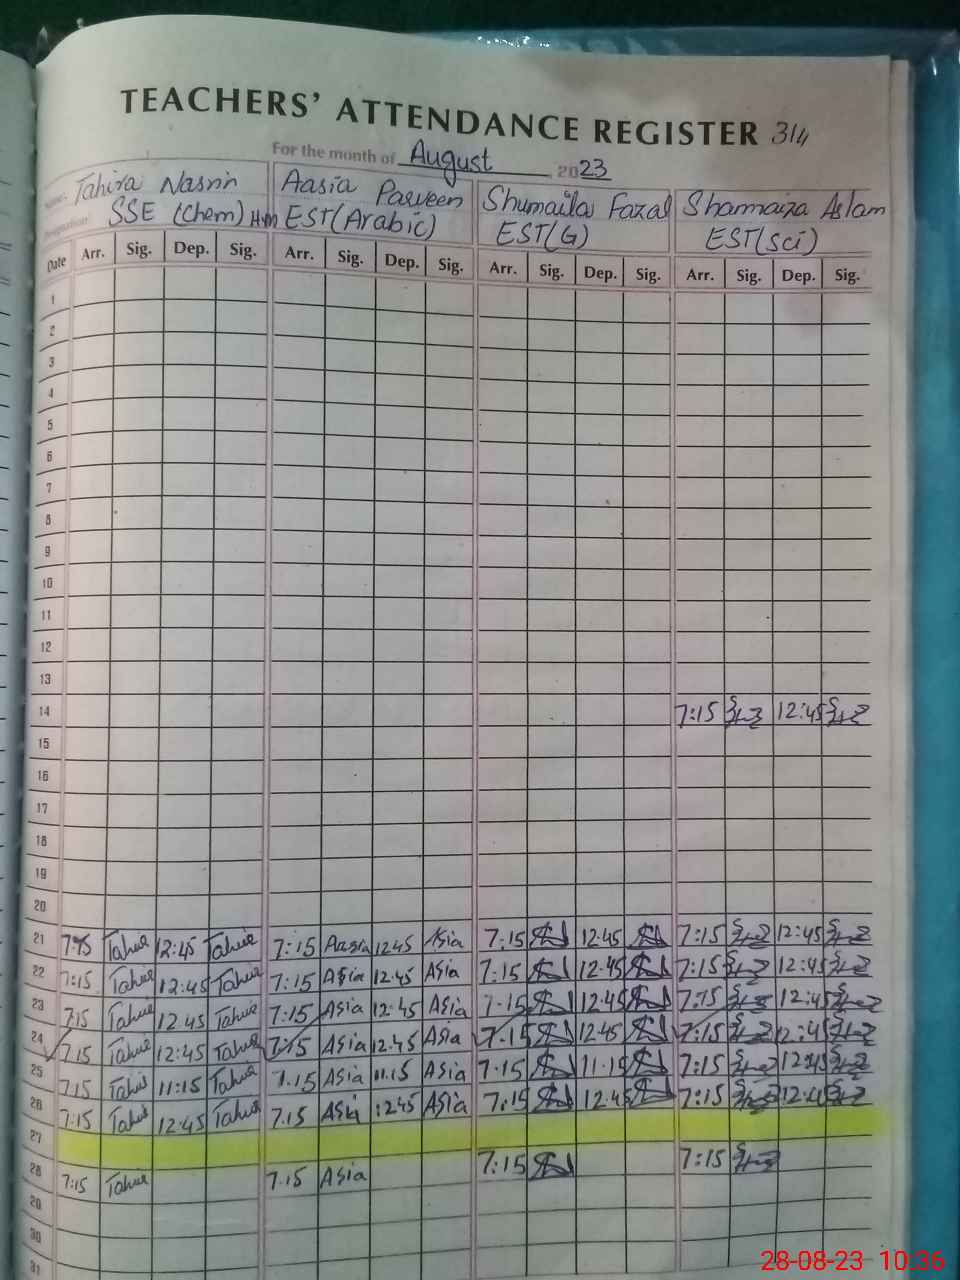 TEACHERS' ATTENDANCE REGISTER 314
For the month of August 2023
Name:- Tahira Nasrin Aasia Parveen Shumaila Fazal Shamaiza Aslam
Designation: SSE (Chem) HM EST(Arabic) EST(G) EST(Sci)
Date Arr. Sig. Dep. Sig. Arr. Sig. Dep. Sig. Arr. Sig. Dep. Sig. Arr. Sig. Dep. Sig.
1
2
3
4
5
6
7
8
9
10
11
12
13
14 7:15 12:45
15
16
17
18
19
20
21 7:15 Tahira 12:45 Tahira 7:15 Aasia 12 45 Asia 7:15 12:45 7:15 12:45
22 7:15 Tahira 12:45 Tahira 7:15 Asia 12:45 Asia 7:15 12:45 7:15 12:45
23 7:15 Tahira 12:45 Tahira 7:15 Asia 12:45 Asia 7:15 12:45 7:15 12:45
24 7:15 Tahira 12:45 Tahira 7:15 Asia 12:45 Asia 7:15 12:45 7:15 12:45
25 7:15 Tahira 11:15 Tahira 7.15 Asia 11.15 Asia 7:15 11:15 7:15 12:45
26 7:15 Tahira 12:45 Tahira 7:15 Asia :245 Asia 7:15 12:45 7:15 12:45
27
28 7:15 Tahira 7.15 Asia 7:15 7:15
29
30
31
28-08-23 10:36